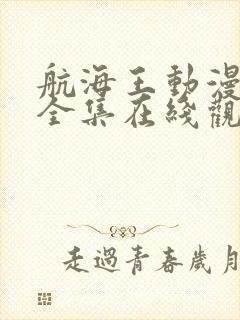 航海王動漫
全集在綫觀
走過青春歲月